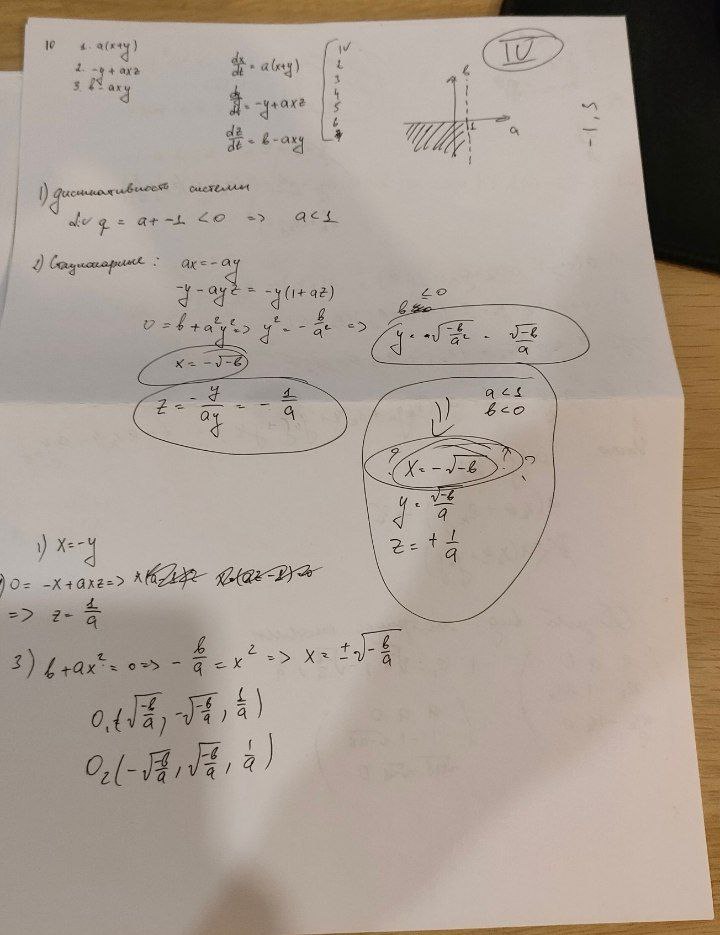 10 1. a(x+y)
2. -y+axz
3. b-axy
dx/dt = a(x+y)
dy/dt = -y+axz
dz/dt = b-axy
IV
2
3
4
5
6
7
IV
b
1
a
-1,5
1) диссипативность системы
div q = a+-1 <0 => a<1
2) Стационарные: ax=-ay
-y-ayz = -y(1+az)
0=b+a²y² => y²=-b/a² =>
≤0
b
y=√(-b/a²) = √-b/a
x=-√-b
z=-y/ay=-1/a
a<1
b<0
? x=-√-b ? ?
y=√-b/a
z=+1/a
1) x=-y
0=-x+axz=>
=> z=1/a
3) b+ax²=0=> -b/a=x² => x=±√-b/a
O₁(√-b/a, -√-b/a, 1/a)
O₂(-√-b/a, √-b/a, 1/a)